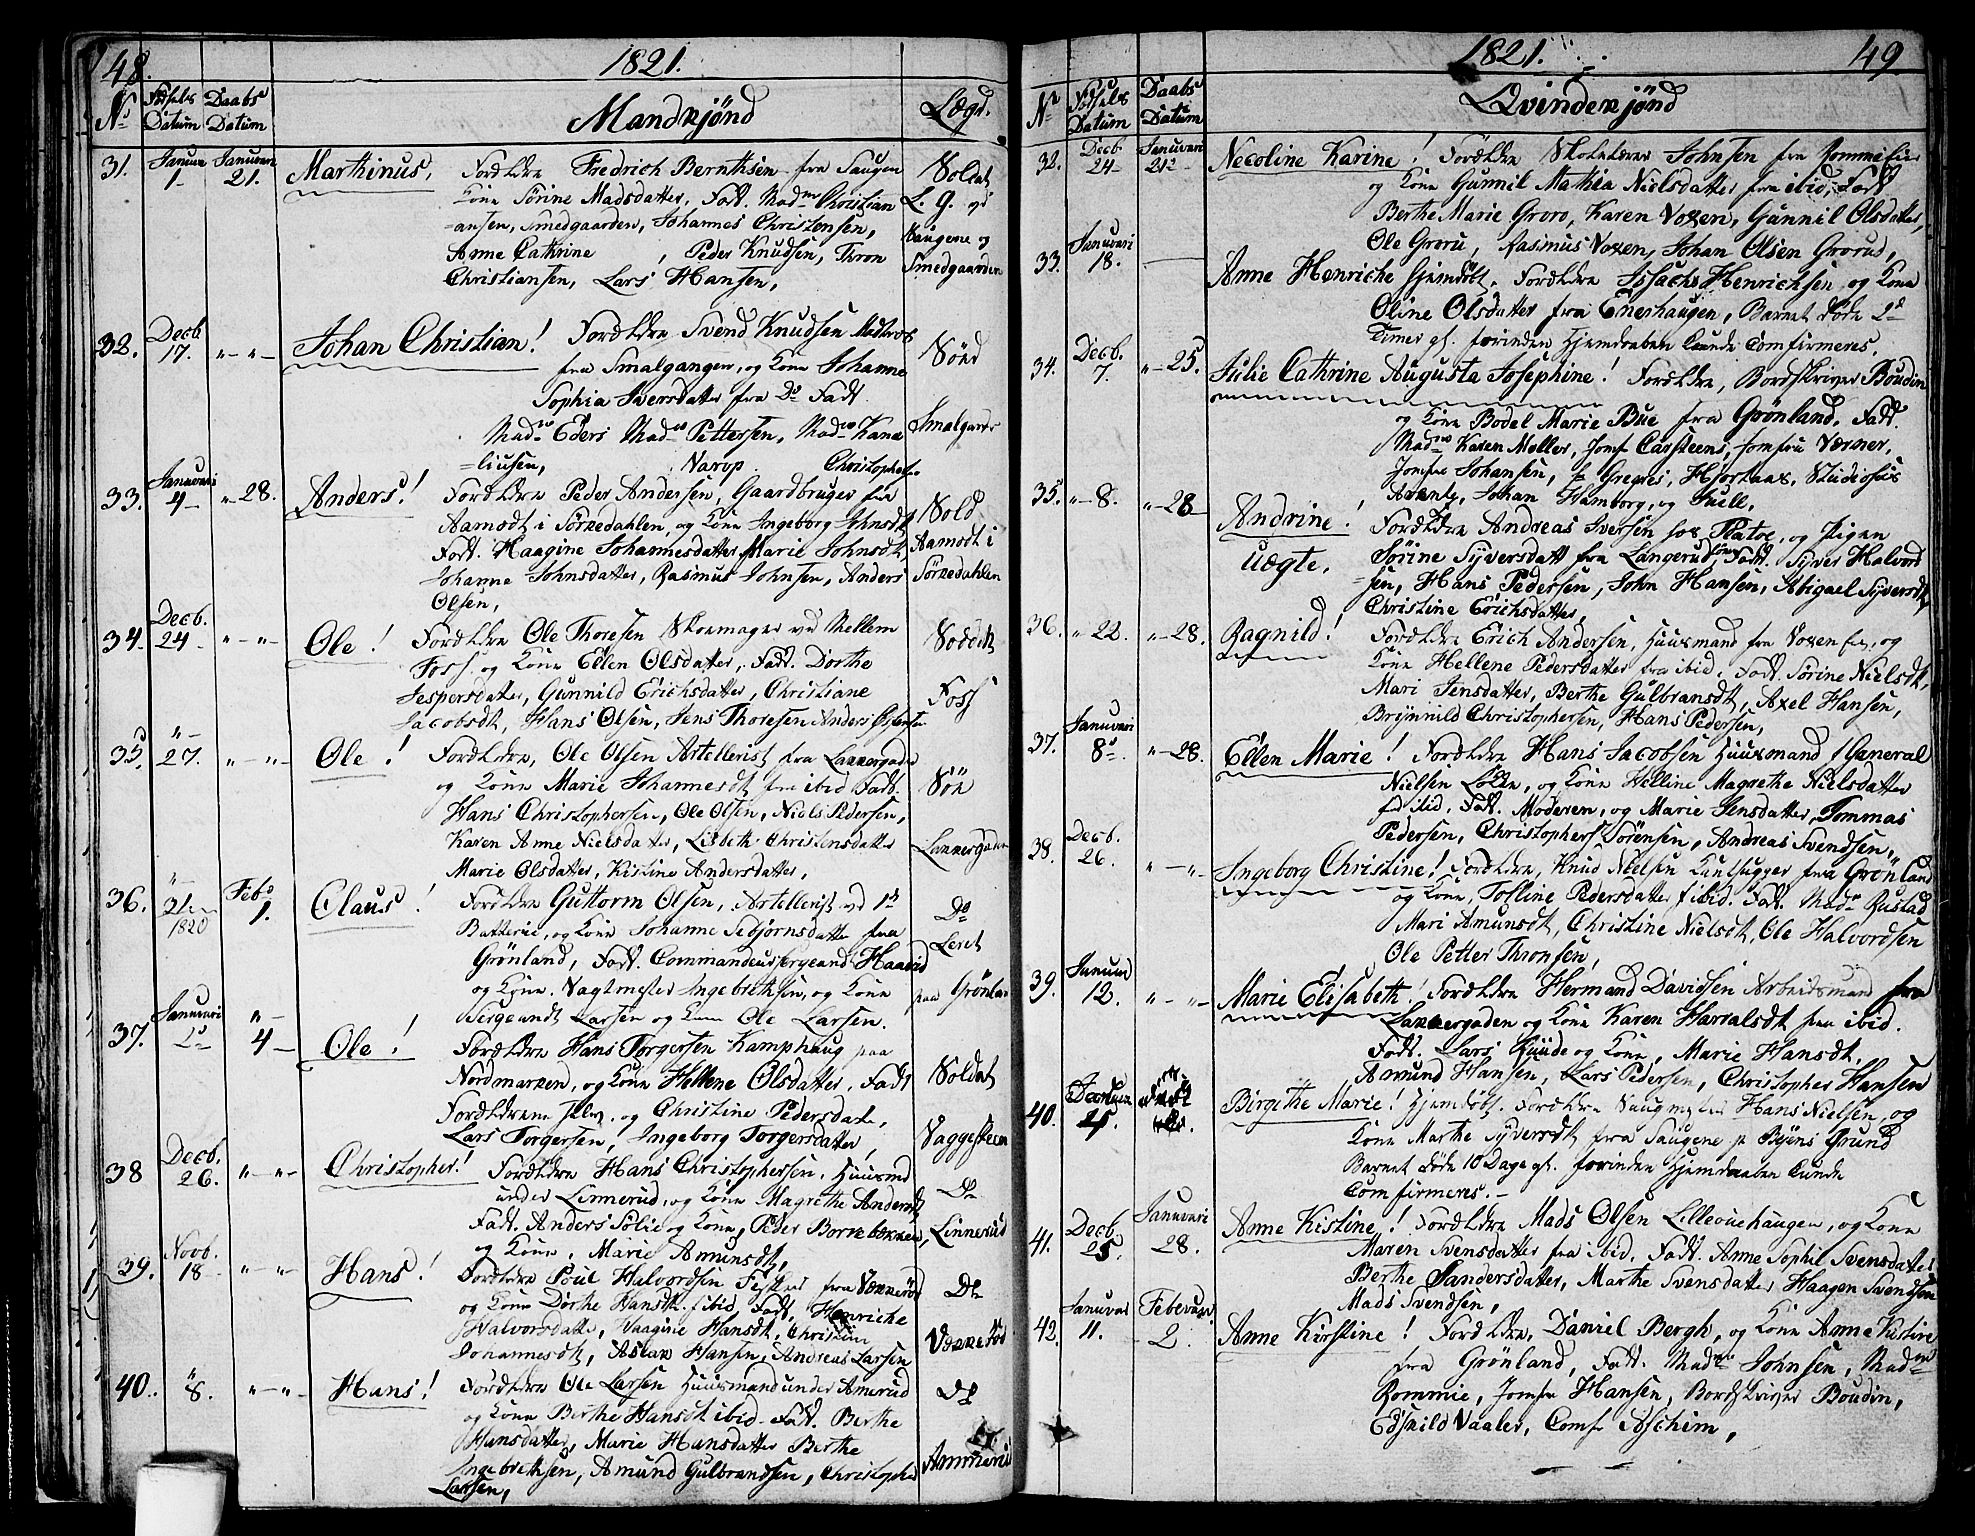 48.
1821.
No Fødsels Datum Daabs Datum Mandkjønd Lægd.
31. Januar 1. Januari 21. Marthinus, Forældre Fredrich Bernthsen fra Saugen Soldat
Kone Sørine Madsdatter, Fadd. Madme Christian L. G. og
=ansen, Smedgaarden, Johannes Christensen, Saugene og
Anne Cathrine , Peder Knudsen, Thron Smedgaarden
Christiansen, Lars Hansen,
32. Decb. 17. " — " — Johan Christian! Forældre Svend Knudsen Madtros Sønd
fra Smalgangen, og Kone Johanne
Sophia Iversdatter fra Do Fadd.
Madme Eders Madme Pettersen, Madme Kane Smalgangen
=liusen, Narop. Christophersen
33. Januari 4 " — 28. Anders! Forældre Peder Andersen, Gaardbruger fra Sold
Aamodt i Sørkedahlen, og Kone Ingeborg Johnsdt Aamodt i
Fadd. Haagine Johannesdatter, Marie Johnsdt, Sørkedahlen
Johanne Johnsdatter, Rasmus Johnsen, Anders
Olsen,
34. Decb. 24 " — " — Ole! Forældre Ole Thoresen Skomager ved Mellem
Foss. og Kone Ellen Olsdatter, Fadd. Dorthe
Jespersdatter, Gunnild Erichsdatter, Christiane Foss
Jacobsdt, Hans Olsen, Jens Thoresen Anders
35. " 27. " — " — Ole! Forældre, Ole Olsen Artellerist fra Lakkergaden
og Kone Marie Johannesdt fra ibid Fadd. Søn
Hans Christophersen, Ole Olsen, Niels Pedersen,
Karen Anne Nielsdatter, Lisbeth Christensdatter Lakkergaden
Marie Olsdatter, Kistine Andersdatter,
36. " 31 1820 Feb. 1. Claus! Forældre Guttorm Olsen, Artellerist ved 1st Do
Batterie, og Kone Johanne Tidjørnsdatter fra Leret
Grönland, Fadd. Commandeursergeand Haavid
og Kone. Vagtmester Ingebrethsen, og Kone paa Grönland
Sergeandt Larsen og Kone Ole Larsen.
37. Januari " — 4 — Ole! Forældre Hans Torgersen Kamphaug paa
Nordmarken, og Kone Hellene Olsdatter. Fadd Soldat
Forældrene selv, og Christine Pedersdatter,
Lars Torgersen, Ingeborg Torgersdatter, Vaggesteen
38 Decb. 26. " — " — Christopher! Forældre Hans Christophersen, Huusmd
under Linnerud, og Kone Magrethe Andersdt Do
Fadd. Anders Sölie og Kone, Peder Borrebekken, Linnerud
og Kone, Marie Amundsdt,
39. Novb. 18 " — " — Hans! Forældre Poul Halvordsen fra Vækkerød
og Kone Dorthe Hansdt. f ibid, Fadd, Henriche
Halvorsdatter, Haagine Hansdt, Christian
Johannesdt, Aslak Hansen, Andreas Larsen
40. " 8. " — " — Hans! Forældre Ole Larsen Huusmand under Amerud Do
og Kone Berthe Hansdt ibid. Fadd. Berthe
Hansdatter, Marie Hansdatter Berthe
Ingebrethsen, Amund Gulbrandsen, Christopher Ammerud
Larsen,
1821.
49.
No Fødsels Datum Daabs Datum Qvindekjønd
32. Decb 24 Januari 21 Necoline Karine! Forældre Skolelærer Johnsen fra
og Kone Gunnil Mathia Nielsdatter fra ibid, Fadd
Berthe Marie Groro, Karen Voxen, Gunnil Olsdatter,
Ole Groru, Rasmus Voxen, Johan Olsen Grorud,
33. Januari 18. — Anne Henriche hjemdöbt. Forældre Issach Henrichsen, og Kone
Oline Olsdatter fra Enerhaugen, Barnet døde 2
Timer gl. forinden Hjemdaaben kunde Comfirmeres.
34. Decb. 7. " — 25. Julie Cathrine Augusta Josephine! Forældre, Bordskriver Boudin
og Kone Bodel Marie Bue fra Grönland. Fadd.
Madme Karen Møller, Jomf Carsteens, Jomfru Værner,
Jomfru Johansen, Gregers, Hjortaas, Studiosus
Johan Hamborg, og Fuell.
35. " — 8. " — 28 Andrine! Forældre Andreas Iversen hos Platoe, og Pigen
Uægte, Sørine Syversdatt fra Langerud, Fadd. Syver Halvord
=sen, Hans Pedersen, John Hansen, Abigael Syversdt,
Christine Erichsdatter,
36. " 22. " — 28. Ragnild! Forældre Erich Andersen, Huusmand fra Voxen, og
Kone Hellene Pedersdatter fra ibid. Fadd. Sørine Nielsdt,
Mari Jensdatter, Berthe Gulbransdt, Axel Hansen,
Brynnild Christophersen, Hans Pedersen,
37. Januari 8 " — 28. Ellen Marie! Forældre Hans Jacobsen Huusmand f General
Nielsen Løkke, og Kone Helline Magrethe Nielsdatter
f ibid. Fadd. Moderen, og Marie Jensdatter, Tommas
Pedersen, Christopher Sørensen, Andreas Svendsen,
38. Decb. 26. " — " Ingeborg Christine! Forældre, Knud Nielsen fra Grönland
og Kone, Tolline Pedersdatter f ibid. Fadd. Madme Rustad
Mari Amunsdt, Christine Nielsdt, Ole Halvordsen
Ole Petter Thronsen,
39. Januar 12. " — " Marie Elisabeth! Forældre Hermand Davidsen Arbeidsmand fra
Lakkergaden og Kone Karen Harralsdt fra ibid.
Fadd. Lars Huude og Kone, Marie Hansdt,
Amund Hansen, Lars Pedersen, Christopher Hansen
40. Birgithe Marie! Hjemdöbt. Forældre Saugmester Hans Nielsen, og
Kone Marthe Syversdt fra Saugene p Byens Grund
Barnet døde 10 Dage gl. forinden Hjemdaaben kunde
Comfirmeres. —
41. Decb. 25. Januari 28. Anne Kistine! Forældre Mads Olsen Lilleouehaugen, og Kone
Maren Svensdatter fra ibid. Fadd. Anne Sophie Svensdatter
Berthe Sandersdatter, Marthe Svensdatter Haagen Svendsen
Mads Svendsen,
42. Januar 11. Februar 2 Anne Kirstine! Forældre, Daniel Bergh, og Kone Anne Kistine
fra Grönland, Fadd. Madme Johnsen, Madme
Rommie, Jomfr Hansen, Bordskriver Boudin,
Edskild Vaaler, Comf Aschim,